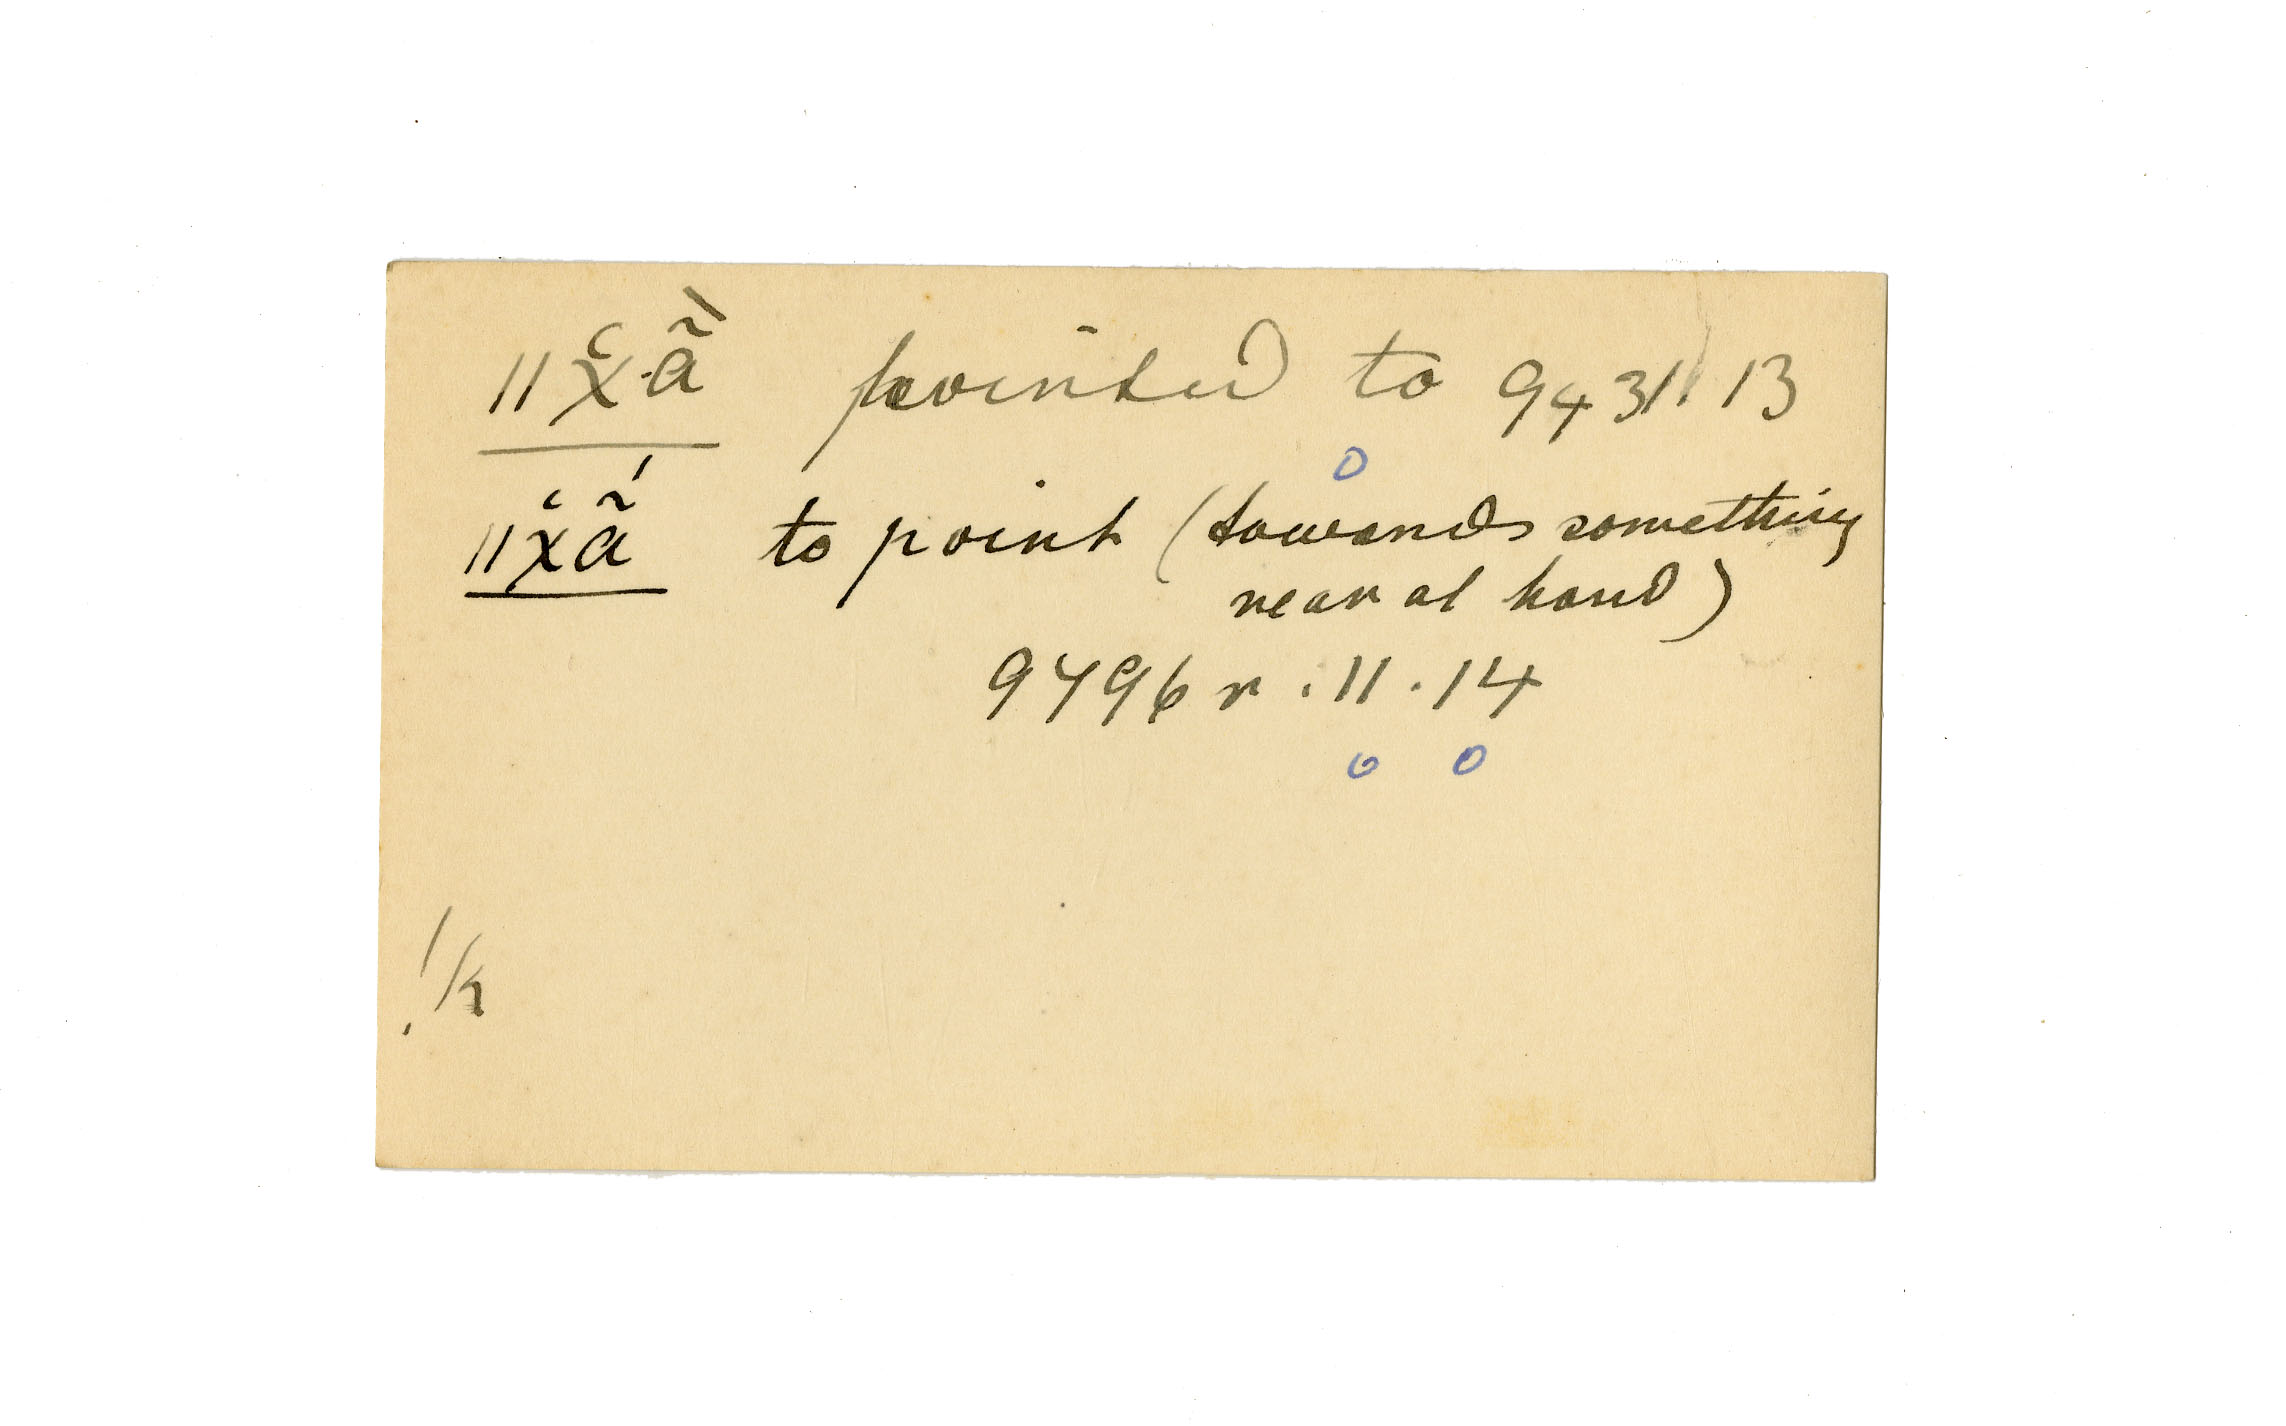 ǁχ̆·ã̋ pointed to 9431 13
ǁχ̆ã́ to point (towards something
near at hand)
9796 r . 11 . 14